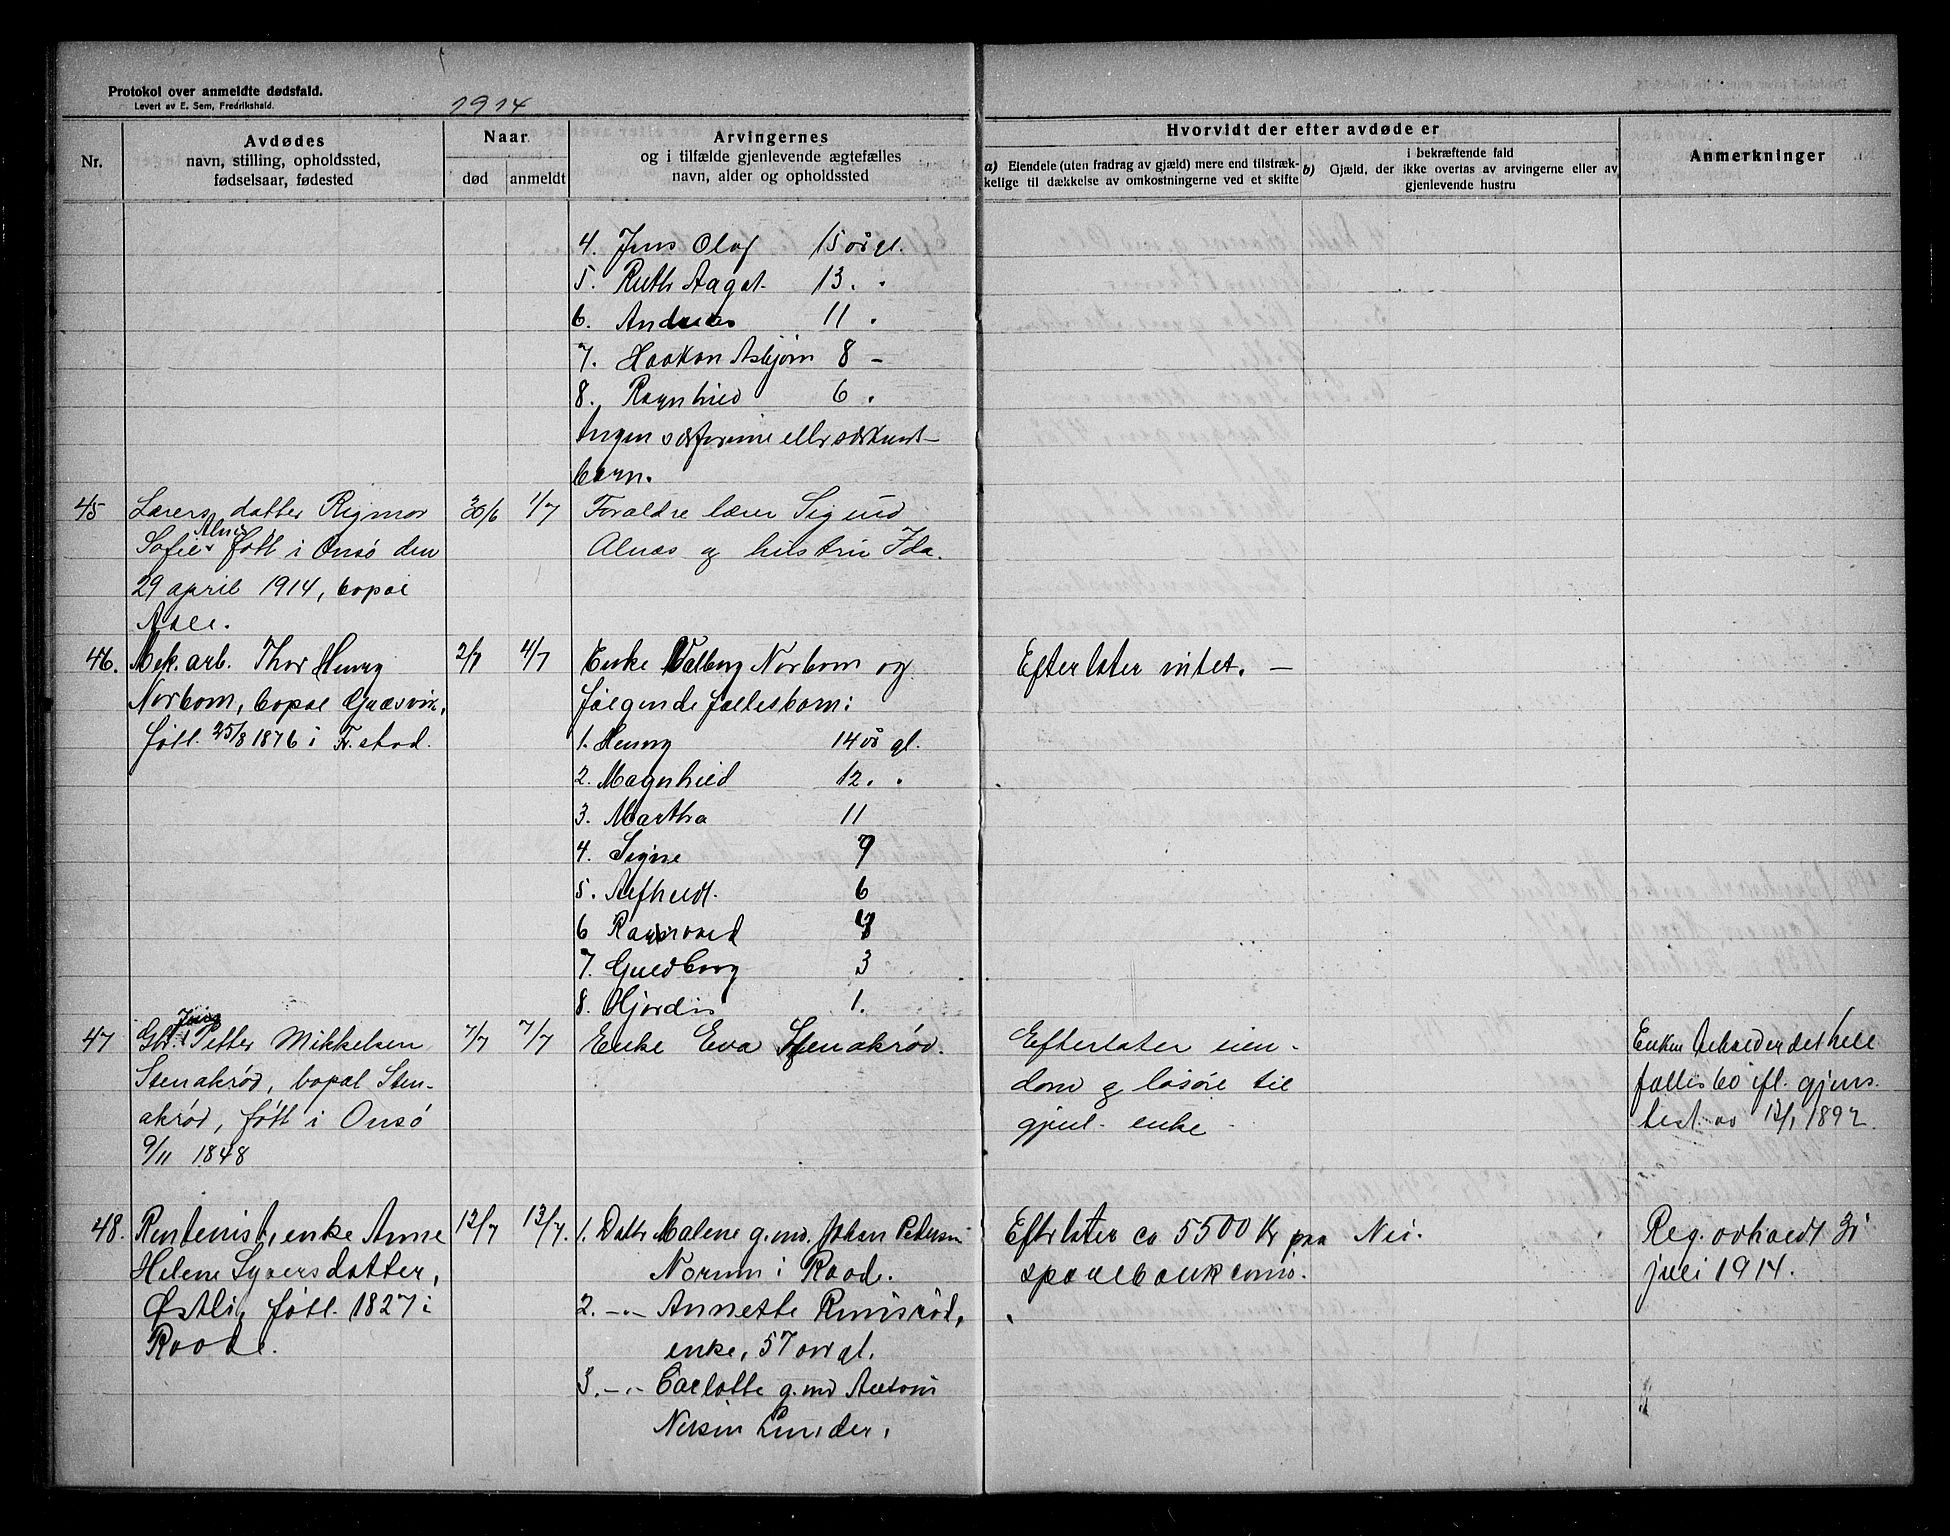 Protokol over anmeldte dødsfald.
Levert av E. Sem, Fredrikshald.
1914
Nr.
Avdødes
navn, stilling, opholdssted,
fødselsaar, fødested
Naar
død
anmeldt
Arvingernes
og i tilfælde gjenlevende ægtefælles
navn, alder og opholdssted
Hvorvidt der efter avdøde er
a) Eiendele (uten fradrag av gjæld) mere end tilstræk-
kelige til dækkelse av omkostningerne ved et skifte
i bekræftende fald
b) Gjæld, der ikke overtas av arvingerne eller av
gjenlevende hustru
Anmerkninger
4. Jens Olaf 15 år gl.
5. Ruth Aagot 13. "
6. Andreas 11 "
7. Haakon Asbjørn 8 –
8. Ragnhild 6 "
Ingen særforeine eller særkuert-
barn.
45 Lærers datter Rigmor 30/6 1/7 Foraldre lærer Sigurd
Alnæs
Sofie født i Onsø den
Alnæs og hustru Ida.
29 april 1914, bopæl
Aale.
46. Mek. arb. Thor Henry 2/7 4/7 Enke Valborg Norbom og Efterlater intet. –
Norbom, bopæl Græsvik, følgende fællesbarn:
født 25/8 1876 i Fr.stad. 1. Henry 14 år gl.
2. Magnhild 12. "
3. Martha 11
4. Signe 9
5. Alfhild. 6
6 Ragnvald
7. Guldborg 3
8. Hjørdis 1.
47 Gbr. Petter Mikkelsen 7/7 7/7 Enke Eva Stenakrød. Efterlater eien- Enken beholder det hele
Stenakrød, bopæl Sten- dom og løsøre til fællesbo ifl. gjens.
akrød, født i Onsø gjenl. enke – test. av 12/1 1892.
9/11 1848
48. Rentenist, enke Anne 12/7 13/7. 1. Datter Malene g.m. Johan Petersen Efterlater ca 5500 Kr paa Nei. Reg. avholdt 31
Helene Syversdatter, Norum i Raade. sparebankkonto. juli 1914.
Østli, født 1827 i 2. –"– Annette Rmisrød,
Raade. enke, 57 aar gl.
3. –"– Carlotte g.m. Antoni
Nilsen Lunder.